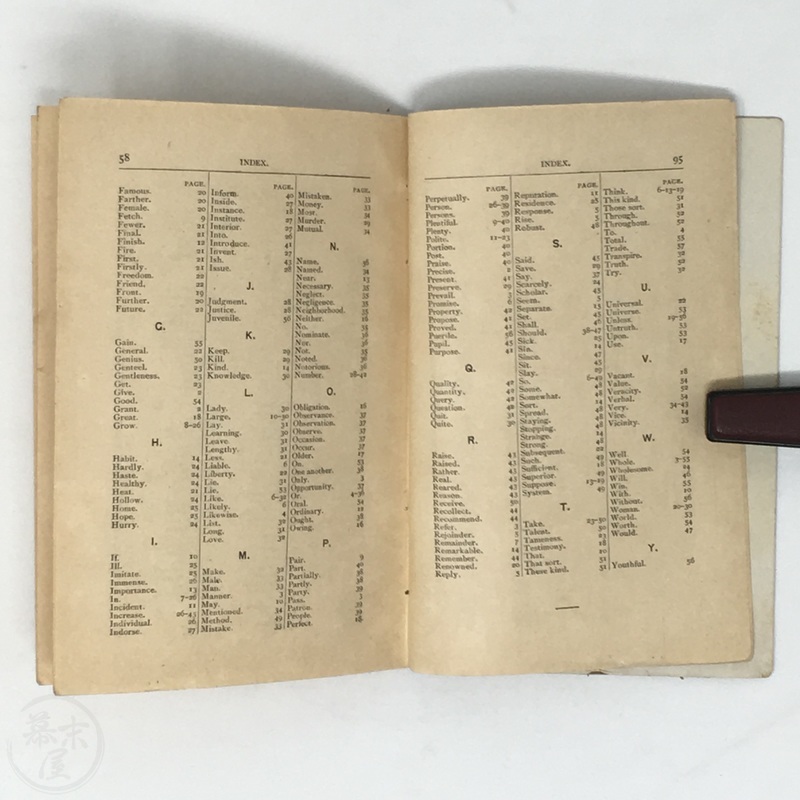 58
INDEX.
PAGE.
Famous. 20
Farther. 20
Female. 20
Fetch. 9
Fewer. 21
Final. 21
Finish. 12
Fire. 21
First. 21
Firstly. 21
Freedom. 22
Friend. 22
Front. 19
Further. 20
Future. 22
G.
Gain. 55
General. 22
Genius. 50
Genteel. 23
Gentleness. 23
Get. 23
Give. 2
Good. 54
Grant. 2
Great. 18
Grow. 8-26
H.
Habit. 14
Hardly. 24
Haste. 24
Healthy. 24
Heat. 21
Hollow. 24
Home. 25
Hope. 25
Hurry. 24
I.
If. 10
Ill. 25
Imitate. 25
Immense. 26
Importance. 13
In. 7-26
Incident. 11
Increase. 26-43
Individual. 26
Indorse. 27
PAGE.
Inform. 40
Inside. 27
Instance. 18
Institute. 27
Interior. 27
Into. 26
Introduce. 41
Invent. 27
Ish. 43
Issue. 28
J.
Judgment. 28
Justice. 28
Juvenile. 56
K.
Keep. 29
Kill. 29
Kind. 14
Knowledge. 30
L.
Lady. 30
Large. 10-30
Lay. 31
Learning. 30
Leave. 31
Lengthy. 31
Less. 21
Liable. 6
Liberty. 22
Lie. 31
Lie. 53
Like. 6-32
Likely. 6
Likewise. 4
List. 32
Long. 31
Love. 32
M.
Make. 32
Male. 33
Man. 33
Manner. 3
May. 10
Mentioned. 34
Method. 49
Mistake. 33
PAGE.
Mistaken. 33
Money. 33
Most. 34
Murder. 29
Mutual. 34
N.
Name. 36
Named. 34
Near. 13
Necessary. 35
Neglect. 35
Negligence. 35
Neighborhood. 35
Neither. 16
No. 35
Nominate. 36
Nor. 36
Not. 35
Noted. 36
Notorious. 36
Number. 28-41
O.
Obligation. 16
Observance. 37
Observation. 37
Observe. 37
Occasion. 37
Occur. 37
Older. 17
On. 53
One another. 38
Only. 3
Opportunity. 37
Or. 4-36
Oral. 54
Ordinary. 11
Ought. 38
Owing. 16
P.
Pair. 9
Part. 40
Partially. 38
Partly. 38
Party. 39
Pass. 3
Patron. 39
People. 39
Perfect. 18
INDEX.
95
PAGE.
Perpetually. 39
Person. 26-39
Persons. 39
Plentiful. 9-40
Plenty. 40
Polite. 11-23
Portion. 40
Post. 40
Praise. 40
Precise. 2
Present. 41
Preserve. 29
Prevail. 5
Promise. 6
Property. 42
Propose. 41
Proved. 41
Puerile. 56
Pupil. 45
Purpose. 41
Q.
Quality. 42
Quantity. 42
Query. 42
Question. 42
Quit. 31
Quite. 30
R.
Raise. 43
Raised. 43
Rather. 43
Real. 43
Reared. 43
Reason. 43
Receive. 50
Recollect. 44
Recommend. 44
Refer. 3
Rejoinder. 5
Remainder. 7
Remarkable. 14
Remember. 44
Renowned. 20
Reply. 5
PAGE.
Reputation. 11
Residence. 25
Response. 5
Rise. 5
Robust. 46
S.
Said. 45
Save. 29
Say. 37
Scarcely. 24
Scholar. 45
Seem. 5
Separate. 13
Set. 45
Shall. 46
Should. 38-47
Sick.
Sin.
Since. 47
Sit. 45
Slay. 29
So. 6-49
Some. 48
Somewhat. 48
Sort. 14
Spread. 48
Staying. 48
Stopping. 48
Strange. 48
Strong. 46
Subsequent. 22
Such. 49
Sufficient. 18
Superior. 49
Suppose. 13-29
System. 49
T.
Take. 23-50
Talent. 50
Tameness. 23
Testimony. 18
That. 10
That sort. 51
These kind. 51
PAGE.
Think. 6-13-19
This kind. 51
Those sort. 51
Through. 52
Throughout. 52
To. 4
Total. 55
Trade. 57
Transpire. 52
Truth. 52
Try. 52
U.
Universal. 22
Universe. 53
Unless. 29-56
Untruth. 53
Upon. 53
Use. 17
V.
Vacant. 18
Value. 54
Veracity. 52
Verbal. 54
Very. 34-43
Vice. 14
Vicinity. 35
W.
Well. 54
Whole. 3-55
Wholesome. 24
Will. 46
Win. 55
With. 10
Without. 56
Woman. 20-30
World. 53
Worth. 54
Would. 47
Y.
Youthful. 56
幕末屋